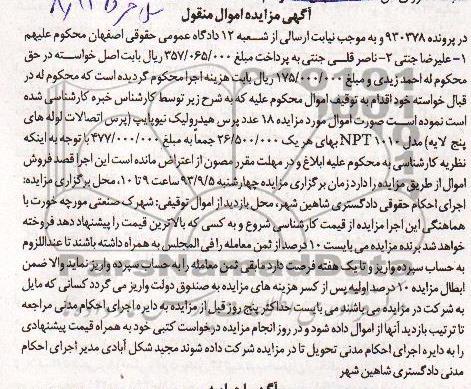 آگهی مزایده اموال منقول
در پرونده ۹۳۰۳۷۸ و به موجب نیابت ارسالی از شعبه ۱۲ دادگاه عمومی حقوقی اصفهان محکوم علیهم
۱- علیرضا جنتی ۲- ناصر قلی جنتی به پرداخت مبلغ ۳۵۷/۰۶۵/۰۰۰ ریال بابت اصل خواسته در حق
محکوم له احمد زیدی و مبلغ ۱۷۵/۰۰۰/۰۰۰ ریال بابت هزینه اجرا محکوم گردیده است که محکوم له در
قبال خواسته خود اقدام به توقیف اموال محکوم علیه که به شرح زیر توسط کارشناس خبره کارشناسی شده
است نموده است صورت اموال مورد مزایده ۱۸ عدد پرس هیدرولیک نیوپایپ (پرس اتصالات لوله های
پنج لایه) مدل NPT ۱۰۱۰ بهای هر یک ۲۶/۵۰۰/۰۰۰ جمعاً به مبلغ ۴۷۷/۰۰۰/۰۰۰ با توجه به اینکه
نظریه کارشناسی به محکوم علیه ابلاغ و در مهلت مقرر مصون از اعتراض مانده است این اجرا قصد فروش
اموال از طریق مزایده را دارد زمان برگزاری مزایده چهارشنبه ۹۳/۹/۵ ساعت ۹ تا ۱۰، محل برگزاری مزایده:
اجرای احکام حقوقی دادگستری شاهین شهر، محل بازدید از اموال توقیفی: شهرک صنعتی مورچه خورت با
هماهنگی این اجرا مزایده از قیمت کارشناسی شروع و به کسی که بالاترین قیمت را پیشنهاد دهد فروخته
خواهد شد برنده مزایده می بایست ۱۰ درصد از ثمن معامله را فی المجلس به همراه داشته باشند تا عنداللزوم
به حساب سپرده واریز و تا یک هفته فرصت دارد مابقی ثمن معامله را به حساب سپرده واریز نماید والا ضمن
ابطال مزایده ۱۰ درصد اولیه پس از کسر هزینه های مزایده به صندوق دولت واریز می گردد کسانی که مایل
به شرکت در مزایده می باشند می بایست حداکثر پنج روز قبل از مزایده به دایره اجرای احکام مدنی مراجعه
تا ترتیب بازدید آنها از اموال داده شود و در روز انجام مزایده درخواست کتبی خود به همراه قیمت پیشنهادی
را به دایره اجرای احکام مدنی تحویل تا در مزایده شرکت داده شوند مجید شکل آبادی مدیر اجرای احکام
مدنی دادگستری شاهین شهر